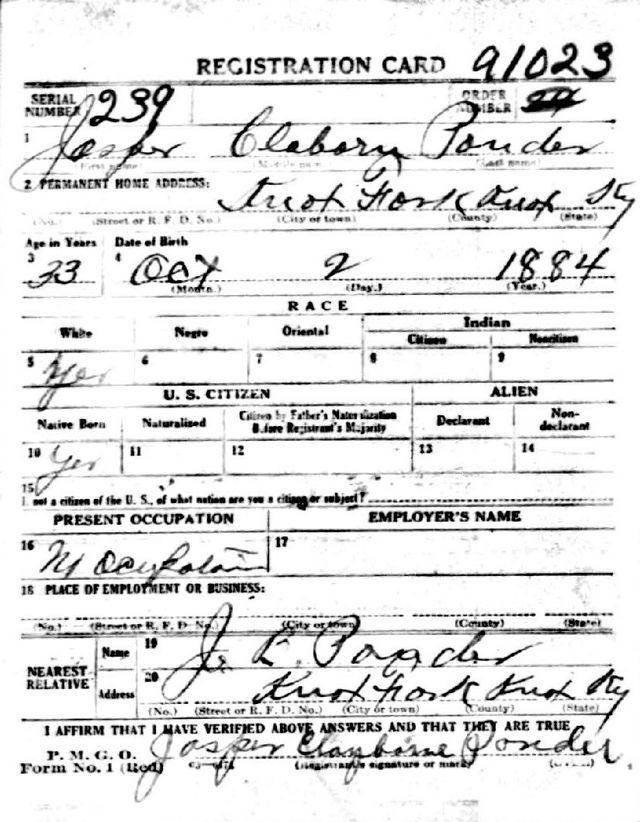 REGISTRATION CARD 91023
SERIAL NUMBER 239 ORDER NUMBER
1 Jasper Claborn Ponder
(First name) (Middle name) (Last name)
2 PERMANENT HOME ADDRESS:
Knox Fork Knox Ky
(No.) (Street or R. F. D. No.) (City or town) (County) (State)
Age in Years Date of Birth
3 33 4 Oct 2 1884
(Month.) (Day.) (Year.)
RACE
White Negro Oriental Indian
Citizen Noncitizen
5 Yes 6 7 8 9
U. S. CITIZEN ALIEN
Native Born Naturalized Citizen by Father's Naturalization Before Registrant's Majority Declarant Non-declarant
10 Yes 11 12 13 14
15
not a citizen of the U. S., of what nation are you a citizen or subject?
PRESENT OCCUPATION EMPLOYER'S NAME
16 17
18 PLACE OF EMPLOYMENT OR BUSINESS:
(No.) (Street or R. F. D. No.) (City or town) (County) (State)
NEAREST RELATIVE Name 19 Ponder
Address 20 Knox Fork Knox Ky
(No.) (Street or R. F. D. No.) (City or town) (County) (State)
I AFFIRM THAT I HAVE VERIFIED ABOVE ANSWERS AND THAT THEY ARE TRUE
P. M. G. O.
Form No. 1 (Red) Jasper Clayborne Ponder
(Registrant's signature or mark) (OVER)